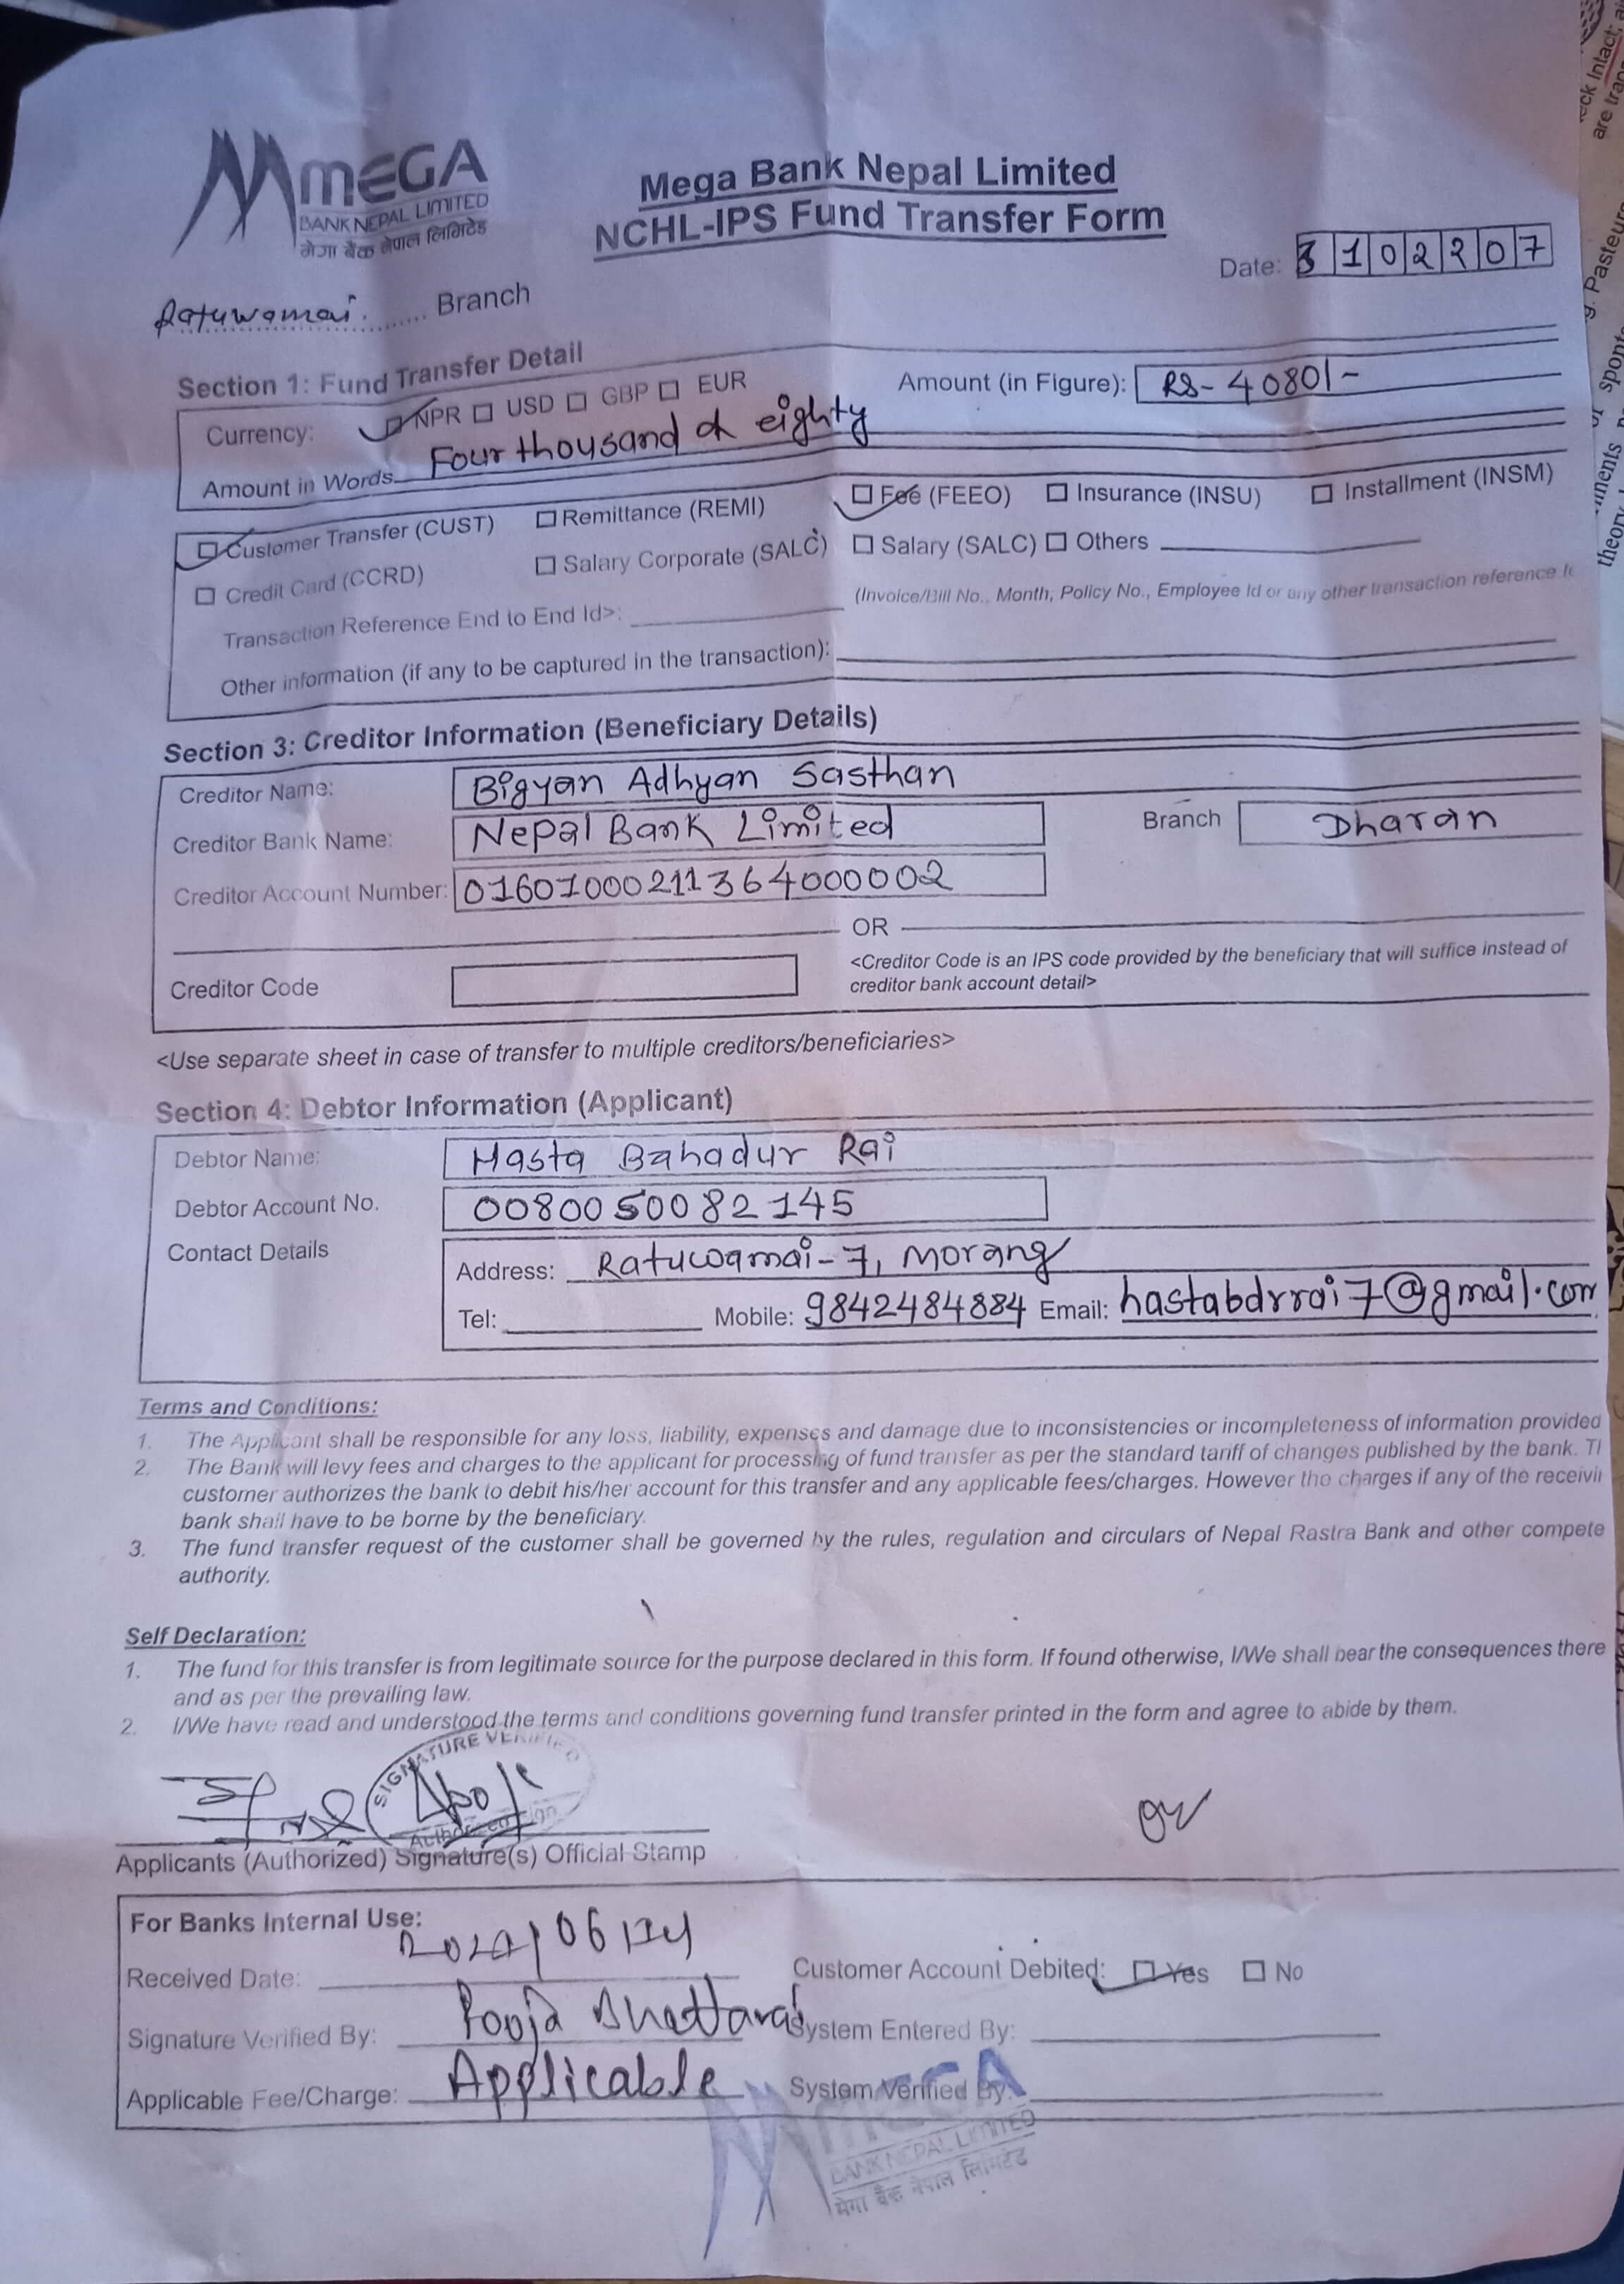 MEGA
BANK NEPAL LIMITED
मेगा बैंक नेपाल लिमिटेड
Mega Bank Nepal Limited
NCHL-IPS Fund Transfer Form
Date: 3 1 0 2 2 0 7
Ratuwamai Branch
Section 1: Fund Transfer Detail
Currency: NPR USD GBP EUR
Amount (in Figure): RS- 4080/-
Amount in Words Four thousand & eighty
Customer Transfer (CUST) Remittance (REMI) Fee (FEEO) Insurance (INSU) Installment (INSM)
Credit Card (CCRD) Salary Corporate (SALC) Salary (SALC) Others
Transaction Reference End to End Id>: (Invoice/Bill No., Month, Policy No., Employee Id or any other transaction reference
Other information (if any to be captured in the transaction):
Section 3: Creditor Information (Beneficiary Details)
Creditor Name: Bigyan Adhyan Sasthan
Creditor Bank Name: Nepal Bank Limited Branch Dharan
Creditor Account Number: 01601000211364000002
OR
Creditor Code <Creditor Code is an IPS code provided by the beneficiary that will suffice instead of
creditor bank account detail>
<Use separate sheet in case of transfer to multiple creditors/beneficiaries>
Section 4: Debtor Information (Applicant)
Debtor Name: Hasta Bahadur Rai
Debtor Account No. 0080050082145
Contact Details
Address: Ratuwamai-7, Morang
Tel: Mobile: 9842484884 Email: hastabdrrai7@gmail.com
Terms and Conditions:
1. The Applicant shall be responsible for any loss, liability, expenses and damage due to inconsistencies or incompleteness of information provided
2. The Bank will levy fees and charges to the applicant for processing of fund transfer as per the standard tariff of changes published by the bank.
customer authorizes the bank to debit his/her account for this transfer and any applicable fees/charges. However the charges if any of the
bank shall have to be borne by the beneficiary.
3. The fund transfer request of the customer shall be governed by the rules, regulation and circulars of Nepal Rastra Bank and other compete
authority.
Self Declaration:
1. The fund for this transfer is from legitimate source for the purpose declared in this form. If found otherwise, I/We shall bear the consequences there
and as per the prevailing law.
2. I/We have read and understood the terms and conditions governing fund transfer printed in the form and agree to abide by them.
SIGNATURE VERIFIED
Applicants (Authorized) Signature(s) Official Stamp
For Banks Internal Use:
Received Date: Customer Account Debited: Yes No
Signature Verified By: Pooja Bhattarai System Entered By:
Applicable Fee/Charge: Applicable System Verified By:
MEGA
BANK NEPAL LIMITED
मेगा बैंक नेपाल लिमिटेड